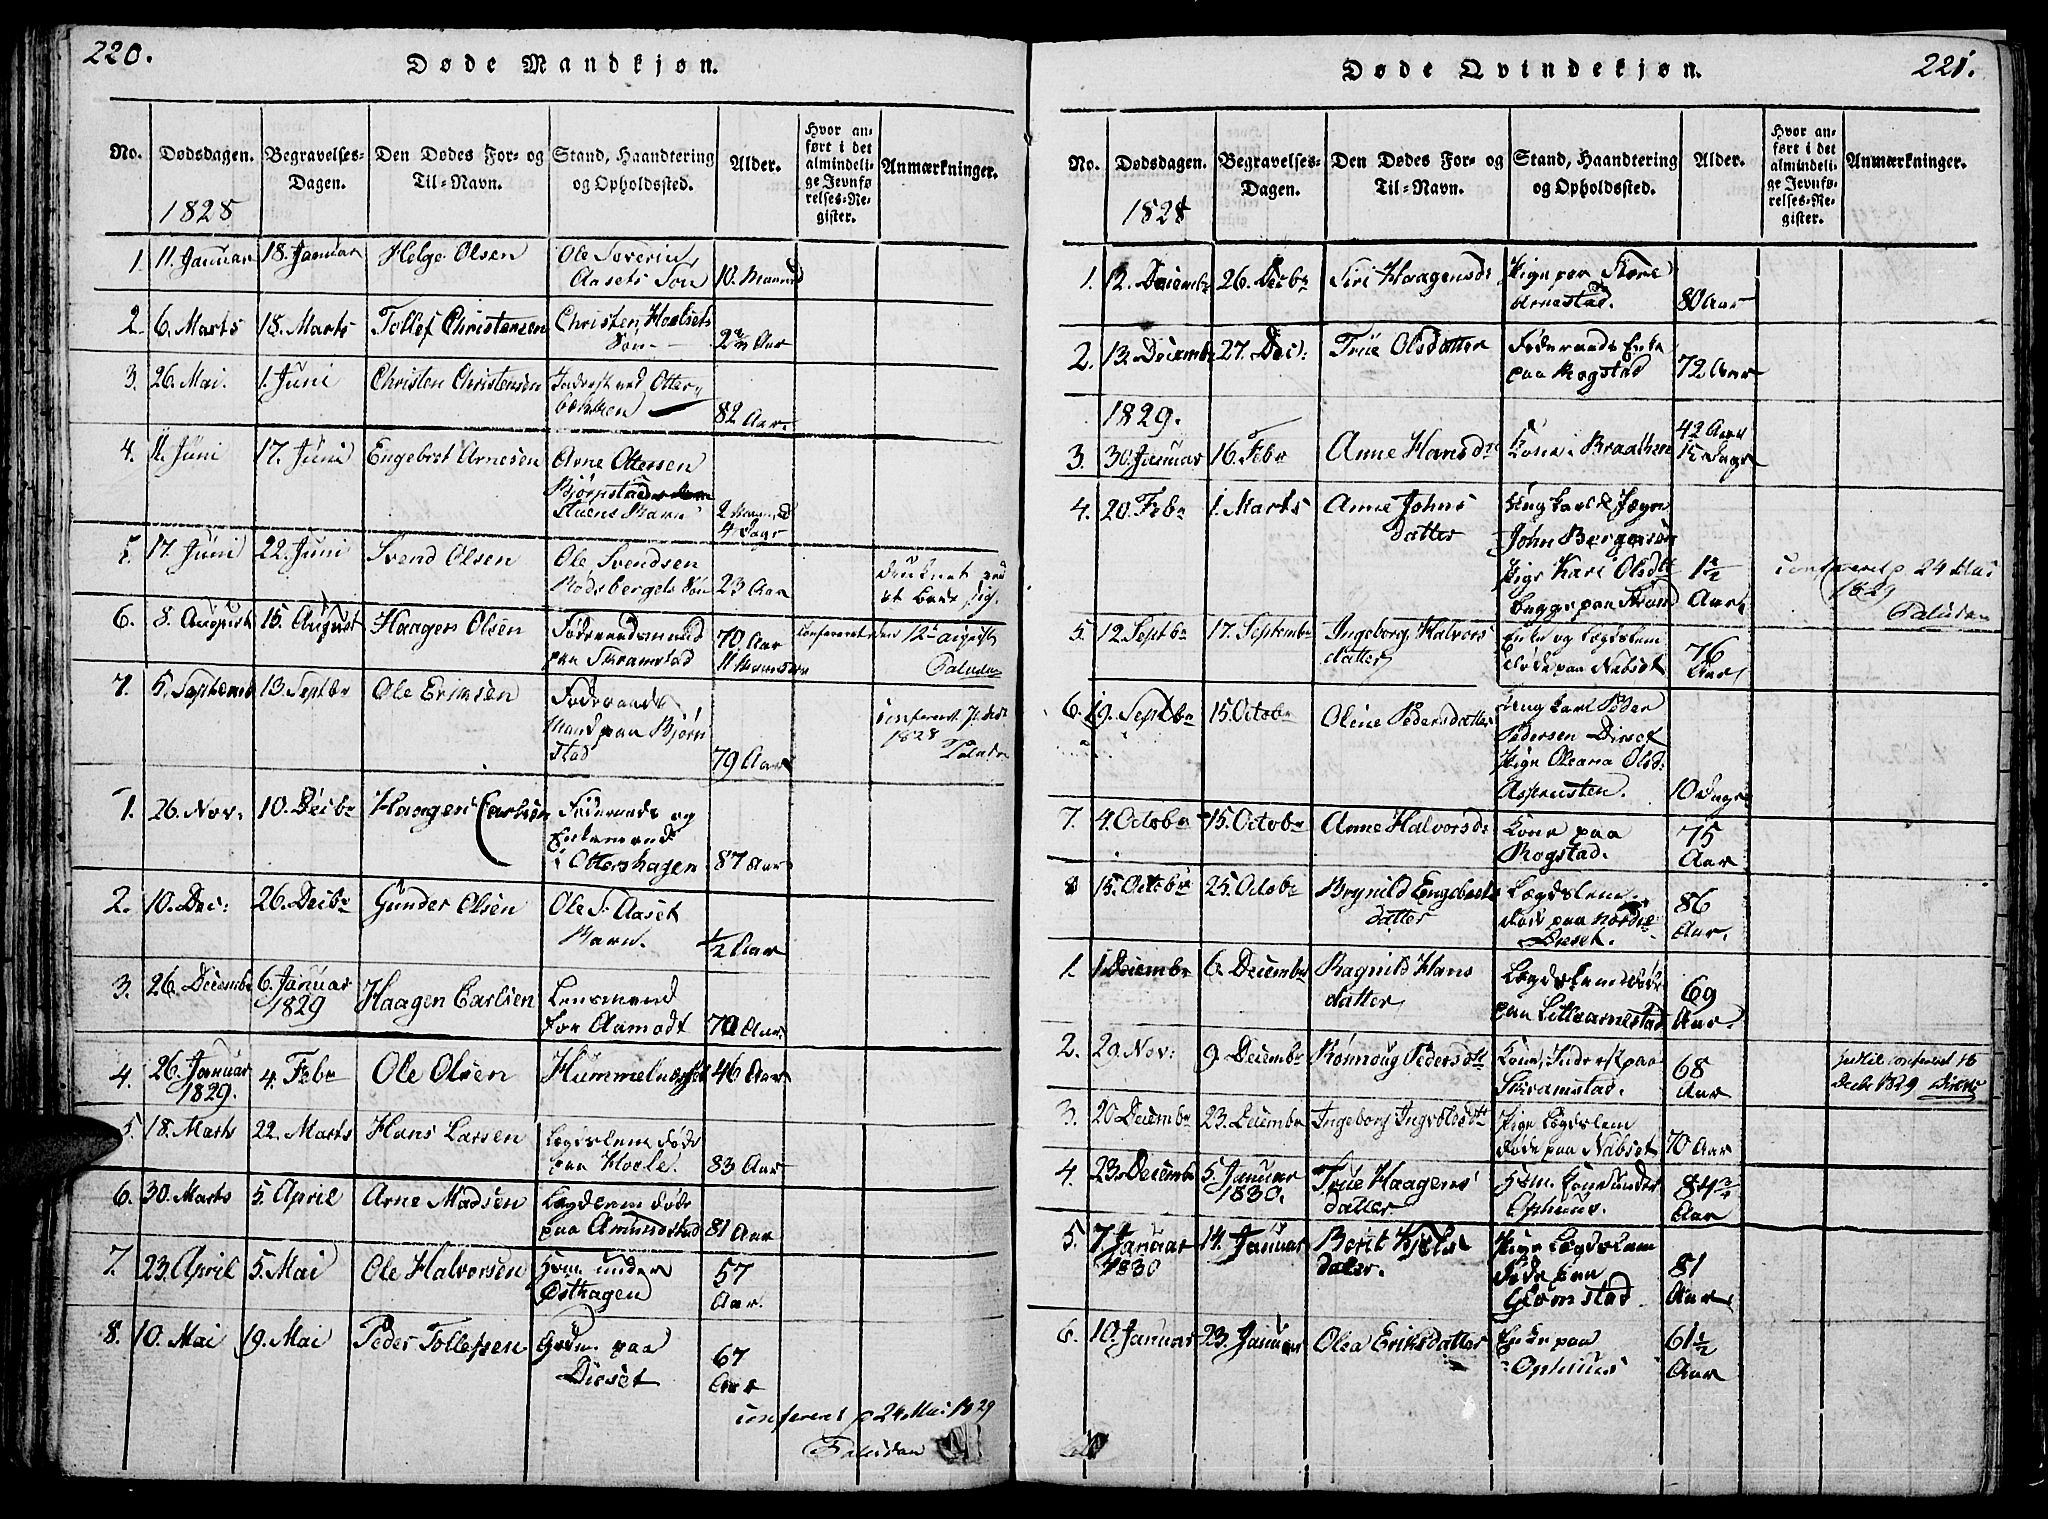 220.
Døde Mandkjøn.
No. Dødsdagen. Begravelses-Dagen. Den Dødes For- og Til-Navn. Stand, Haandtering og Opholdssted. Alder. Hvor anført i det almindelige Jevnførelses-Register. Anmærkninger.
1828
1. 11. Januar 18. Januar Helge Olsen Ole Severin
Aasets Søn 10. Maaned
2. 6. Marts 18. Marts Tollef Christensen Christen Hoelsets
Søn 2 3/4 Aar
3. 26. Mai. 1. Juni Christen Christensen Inderst ved Otter
bækken 82 Aar
4. 11. Juni 17. Juni Engebret Arnesen Arne Ottersen
Bjørnstad
Stuens Barn 2 Maaned
4 Dage
5. 17. Juni 22. Juni Svend Olsen Ole Svendsen
Rødsbergets Søn 23 Aar druknet ved
at bade sig.
6. 8. August 15. August Haagen Olsen Føderaadsmand
paa Skramstad 70 Aar
11 Maaneder conferert den 12te august
Paludan
7. 5. Septembr 13. Septbr Ole Eriksen Føderaads
Mand paa Bjørn
stad 79 Aar conferert
1828
Paludan
1. 26. Nov. 10. Decbr Haagen Carlsen Føderaads og
Enkemand
i Ottershagen 87 Aar
2. 10. Dec: 26. Decbr Gunder Olsen Ole S. Aaset
Barn. 1/2 Aar
3. 26 Decembr 6. Januar
1829 Haagen Carlsen Lensmand
for Aamodt 70 Aar
4. 26. Januar
1829. 4. Febr Ole Olsen Hummelnæsset 46 Aar
5. 18. Marts 22. Marts Hans Larsen Lægdslem døde
paa Hoele. 83 Aar
6. 30. Marts 5. April Arne Madsen Lægdslem døde
paa Amundstad 81 Aar
7. 23. April 5. Mai Ole Halvorsen Hsm. under
Østhagen 57
Aar.
8. 10. Mai 19. Mai Peder Tollefsen Gdm. paa
Dieset 67
Aar
conferert p 24 Mai 1829
Paludan
221.
Døde Qvindekjøn.
No. Dødsdagen. Begravelses-Dagen. Den Dødes For- og Til-Navn. Stand, Haandtering og Opholdssted. Alder. Hvor anført i det almindelige Jevnførelses-Register. Anmærkninger.
1828
1. 12. Decembr 26. Decbr Siri Haagensdr Pige paa Store
Arnestad. 80 Aar
2. 13. Decembr 27. Dec: Trüe Olsdatter Føderaads Enke
paa Rogstad 72 Aar
1829.
3. 30. Januar 16. Febr Anne Hansdr Kone i Braathen 42 Aar
12 Dage
4. 20. Febr 1. Marts Anne Johns
datter Ungkarl &amp; Jæger
John Bergersen
Pige Kari Olsdtr
begge paa Strand 1 1/2
Aar conferert p. 24 Mai
1829
Paludan
5. 12 Septbr 17. Septembr Ingeborg Halvors
datter Enke og Lægdslem
døde paa Nabset 76
Aar
6. 19. Septbr 15. Octobr Oline Pedersdatter Ungkarl Peder
Pedersen Diset
Pige Oleana Olsd:
Aspeusten. 10 dage
7. 4. Octobr 15. Octobr Anne Halvorsdr Kone paa
Rogstad. 75
Aar
8 15. Octobr 25. Octobr Brynild Engebrets
datter Lægdslem
døde paa Nordre
Diset. 86
Aar.
1. 1 Decembr 6. Decembr Ragnild Hans
datter Lægdslem døde
paa Lillearnestad 69
Aar.
2. 20. Nov: 9. Decembr Rønnoug Pedersdtr Kone, Inderst paa
Skramstad. 68
Aar conferert 16
Decbr 1829
3. 20 Decembr 23. Decembr Ingeborg Ingvoldsdtr Pige Lægdslem
døde paa Nabset 70 Aar
4. 23. Decembr 5. Januar
1830. Trüe Haagens
datter Hsm. Kone under
Ophuus. 84 3/4
Aar
5. 7. Januar
1830 14. Januar Berit Kjels
datter. Pige Lægdslem
døde paa
Glomstad 81
Aar
6. 10. Januar 23. Januar Olea Eriksdatter Enke paa
Ophuus 61 1/2
Aar